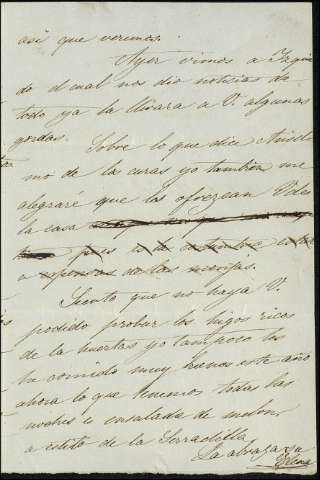 así que veremos.
Ayer vimos a Izquier
do el cual nos dio noticias de
todo ya le llevara a V. algunas
gordas. Sobre lo que dice Anisel
mo de las curas yo tambien me
alegraré que les ofrezcan Vdes
la casa
pues es costumbre estar
a expensas de las monjas.
Siento que no haya V.
podido probar los higos ricos
de la huerta yo tampoco los
he comido muy buenos este año
ahora lo que tenemos todas las
noches es ensalada de melon,
a estilo de la Serradilla
La abraza
Elena